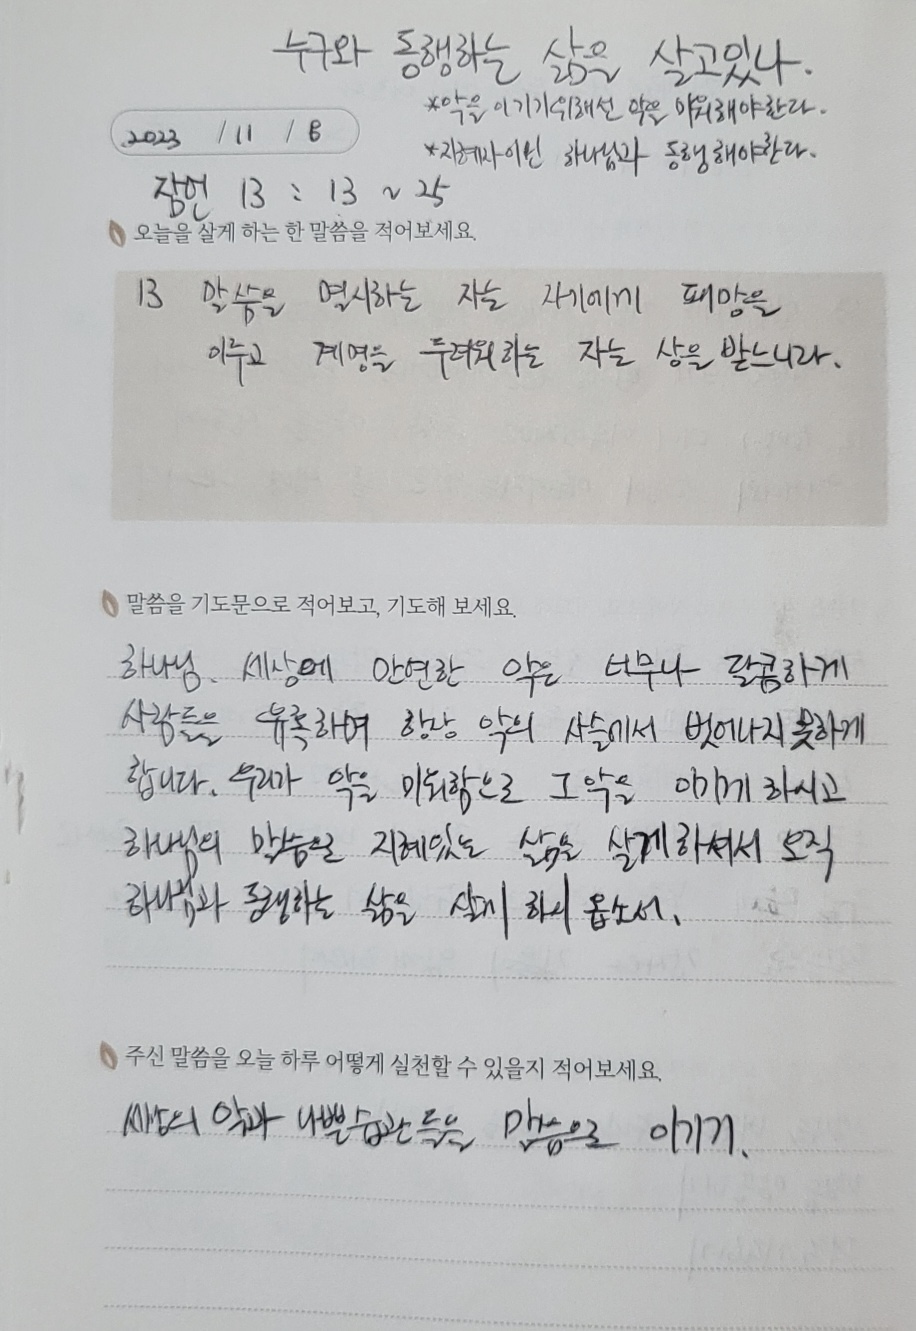 누구와 동행하는 삶을 살고있나.
*악을 이기기위해선 악을 미워해야한다.
*지혜자이신 하나님과 동행해야한다.
2023 / 11 / 8
잠언 13 : 13 ~ 25
오늘을 살게 하는 한 말씀을 적어보세요.
13 말씀을 멸시하는 자는 자기에게 패망을
이루고 계명을 두려워하는 자는 상을 받느니라.
말씀을 기도문으로 적어보고, 기도해 보세요.
하나님. 세상에 만연한 악은 너무나 달콤하게
사람들을 유혹하며 항상 악의 사슬에서 벗어나지 못하게
합니다. 우리가 악을 미워함으로 그 악을 이기게 하시고
하나님의 말씀으로 지혜있는 삶을 살게하셔서 오직
하나님과 동행하는 삶을 살게 하시옵소서.
주신 말씀을 오늘 하루 어떻게 실천할 수 있을지 적어보세요.
세상의 악과 나쁜습관들을 말씀으로 이기기.